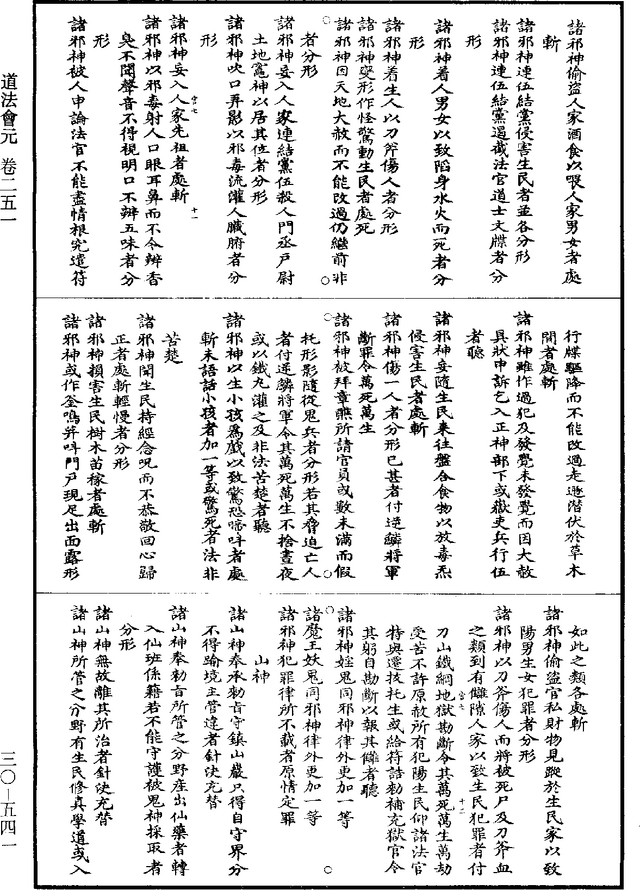 道法會元 卷二五一
諸邪神偷盜人家酒食以喂人家男女者處
斬
諸邪神連伍結黨侵害生民者並各分形
諸邪神連伍結黨遏截法官道士文牒者分
形
諸邪神着人男女以致陷身水火而死者分
形
諸邪神着生人以刀斧傷人者分形
諸邪神變形作怪驚動生民者處死
諸邪神因天地大赦而不能改過仍繼前非
者分形
諸邪神妄入人家連結黨伍殺人門丞戶尉
土地竈神以居其位者分形
諸邪神吹口弄影以邪毒流灌人臟腑者分
形
諸邪神妄入人家先祖者處斬
諸邪神以邪毒射人口眼耳鼻而不令辨香
臭不聞聲音不得視明口不辨五味者分
形
諸邪神被人申論法官不能盡情根究遣符
行牒驅降而不能改過走遯潛伏於草木
間者處斬
諸邪神雖作過犯及發覺未發覺而因大赦
具狀申訴乞入正神部下或嶽吏兵行伍
者聽
諸邪神妄隨生民來往盤合食物以放毒炁
侵害生民者處斬
諸邪神傷一人者分形已甚者付逆鱗將軍
斷罪令萬死萬生
諸邪神被拜章醮所請官員或數未滿而假
托形影隨從鬼兵者分形若其脅迫亡人
者付逆鱗將軍令其萬死萬生不捨晝夜
或以鐵丸灌之及非法苦楚者聽
諸邪神以生小孩爲戲以致驚恐啼呌者處
斬未語話小孩者加一等或驚死者法非
苦楚
諸邪神聞生民持經念呪而不恭敬回心歸
正者處斬輕慢者分形
諸邪神損害生民樹木苗稼者處斬
諸邪神或作釜鳴井呌門戶現足出面露形
如此之類各處斬
諸邪神偷盜官私財物見蹤於生民家以致
陽男生女犯罪者分形
諸邪神以刀斧傷人而將被死尸及刀斧血
之類到有讎隙人家以致生民犯罪者付
刀山鐵網地獄勘斷令其萬死萬生萬劫
受苦不許原赦所有犯陽生民仰諸法官
特與還技托生或給符誥勅補充獄官令
其躬自勘斷以報其讎者聽
諸邪神婬鬼同邪神律外更加一等
諸魔王妖鬼同邪神律外更加一等
諸邪神犯罪律所不載者原情定罪
山神
諸山神奉承勅旨守鎮山嚴只得自守界分
不得踰境主管違者針決充替
諸山神奉勅旨所管之分野產出仙藥者轉
入仙班係籍若不能守護被鬼神採取者
分形
諸山神無故離其所治者針決充替
諸山神所管之分野有生民修真學道或入
三〇—五四一